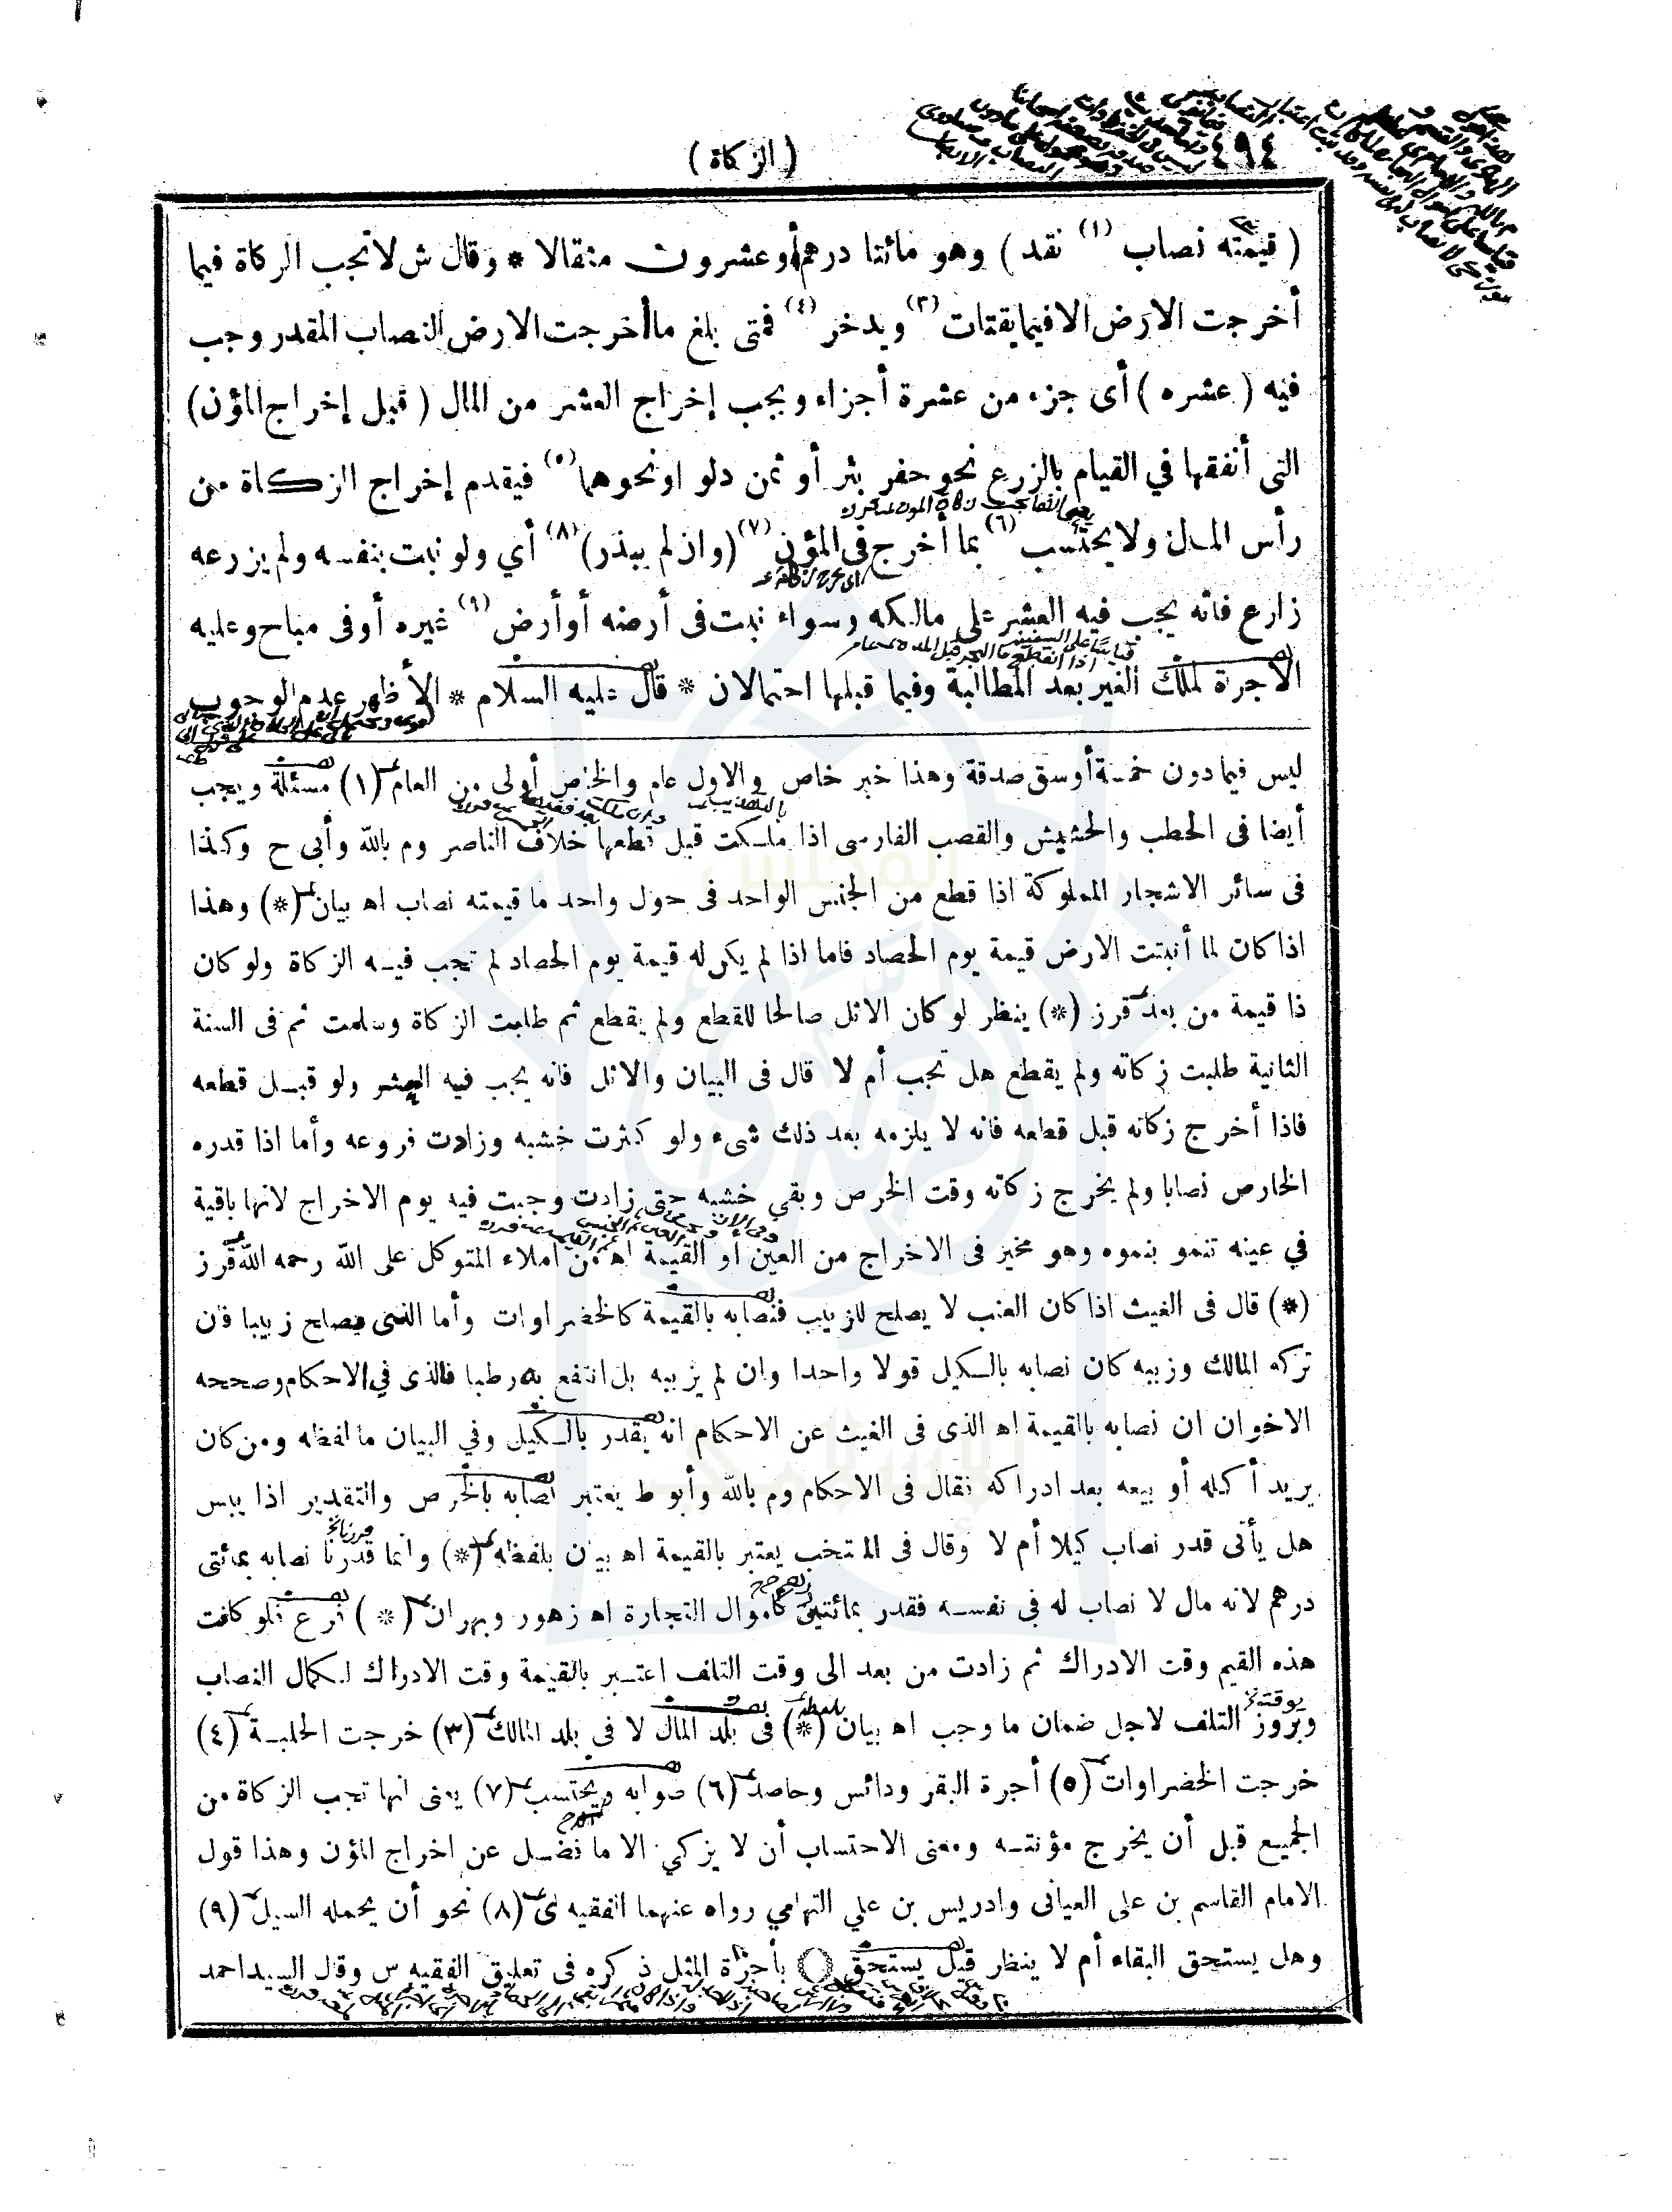 ٤٩٤
( الزكاة )
( قيمته نصاب (١) نقد ) وهو مائتا درهم أو عشرون مثقالا * وقال ش لا تجب الزكاة فيما
أخرجت الارض الا فيما يقتات (٣) ويدخر (٤) فمتى بلغ ما أخرجت الارض النصاب المقدر وجب
فيه ( عشره ) أى جزء من عشرة أجزاء ويجب إخراج العشر من المال ( قبل إخراج المؤن )
التى أنفقها في القيام بالزرع نحو حفر بئر أو ثمن دلو او نحوهما (٥) فيقدم إخراج الزكاة من
رأس المال ولا يحتسب (٦) بما أخرج فى المؤن (٧) (وان لم يبذر) (٨) أي ولو نبت بنفسه ولم يزرعه
زارع فانه يجب فيه العشر على مالكه وسواء نبت فى أرضه أو أرض (٩) غيره أو فى مباح وعليه
الأجرة لملك الغير بعد المطالبة وفيما قبلها احتمالان * قال عليه السلام * الأظهر عدم الوجوب
ليس فيما دون خمسة أوسق صدقة وهذا خبر خاص والاول عام والخاص أولى من العام (١) مسئلة ويجب
أيضا فى الحطب والحشيش والقصب الفارسى اذا ملكت قبل قطعها خلاف الناصر وم بالله وأبى ح وكذا
فى سائر الاشجار المملوكة اذا قطع من الجنس الواحد فى حول واحد ما قيمته نصاب اه بيان (*) وهذا
اذا كان لما أنبتت الارض قيمة يوم الحصاد فاما اذا لم يكن له قيمة يوم الحصاد لم تجب فيه الزكاة ولو كان
ذا قيمة من بعد قرز (*) ينظر لو كان الاثل صالحا للقطع ولم يقطع ثم طلبت الزكاة وسلمت ثم فى السنة
الثانية طلبت زكاته ولم يقطع هل تجب أم لا قال فى البيان والاثل فانه يجب فيه العشر ولو قبل قطعه
فاذا أخرج زكاته قبل قطعه فانه لا يلزمه بعد ذلك شىء ولو كثرت خشبه وزادت فروعه وأما اذا قدره
الخارص نصابا ولم يخرج زكاته وقت الخرص وبقي خشبه حتى زادت وجبت فيه يوم الاخراج لانها باقية
في عينه تنمو بنموه وهو مخير فى الاخراج من العين او القيمة اه من املاء المتوكل على الله رحمه الله قرز
(*) قال فى الغيث اذا كان العنب لا يصلح للزبيب فنصابه بالقيمة كالخضراوات وأما الذى يصلح زبيبا فان
تركه المالك وزببه كان نصابه بالكيل قولا واحدا وان لم يزببه بل انتفع به رطبا فالذى في الاحكام وصححه
الاخوان ان نصابه بالقيمة اه الذى فى الغيث عن الاحكام انه يقدر بالكيل وفي البيان ما لفظه ومن كان
يريد أكله أو بيعه بعد ادراكه فقال فى الاحكام وم بالله وأبو ط يعتبر نصابه بالخرص والتقدير اذا يبس
هل يأتى قدر نصاب كيلا أم لا وقال فى المنتخب يعتبر بالقيمة اه بيان بلفظه (*) وانما قدرنا نصابه بمائتى
درهم لانه مال لا نصاب له في نفسه فقدر بمائتين كاموال التجارة اه زهور وبهران (*) فرع فلو كانت
هذه القيم وقت الادراك ثم زادت من بعد الى وقت التلف اعتبر بالقيمة وقت الادراك لكمال النصاب
وبروز التلف لاجل ضمان ما وجب اه بيان (*) فى بلد المال لا في بلد المالك (٣) خرجت الحلبة (٤)
خرجت الخضراوات (٥) أجرة البقر ودائس وحاصد (٦) صوابه ويحتسب (٧) يعنى انها تجب الزكاة من
الجميع قبل أن يخرج مؤنته ومعنى الاحتساب أن لا يزكي الا ما فضل عن اخراج المؤن وهذا قول
الامام القاسم بن على العيانى وادريس بن علي التهامي رواه عنهما الفقيه ى (٨) نحو أن يحمله السيل (٩)
وهل يستحق البقاء أم لا ينظر قيل يستحق بأجرة المثل ذكره فى تعليق الفقيه س وقال السيد احمد